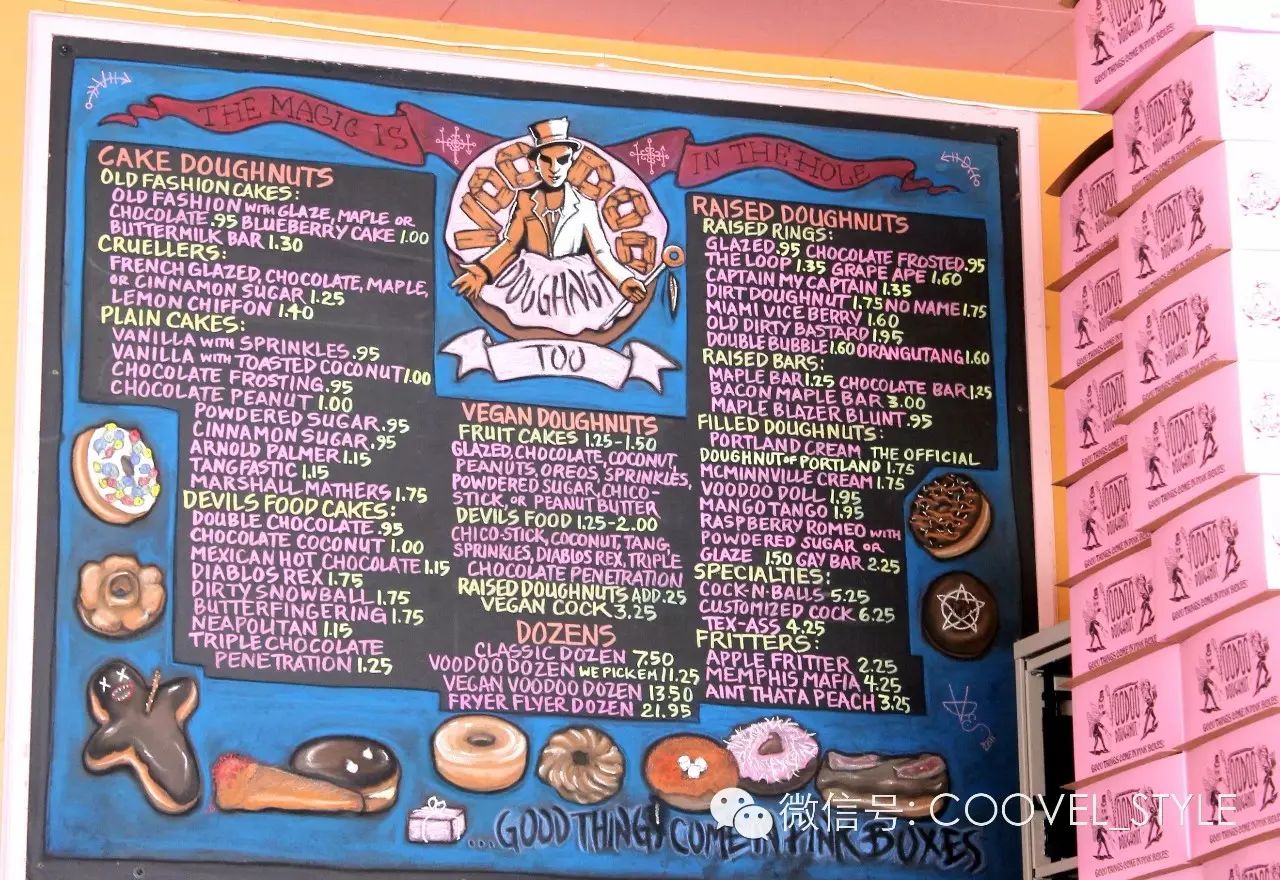 THE MAGIC IS
IN THE HOLE
VOODOO
DOUGHNUT
TOO
CAKE DOUGHNUTS
OLD FASHION CAKES:
OLD FASHION WITH GLAZE, MAPLE OR
CHOCOLATE .95 BLUEBERRY CAKE 1.00
BUTTERMILK BAR 1.30
CRUELLERS:
FRENCH GLAZED, CHOCOLATE, MAPLE,
OR CINNAMON SUGAR 1.25
LEMON CHIFFON 1.40
PLAIN CAKES:
VANILLA WITH SPRINKLES .95
VANILLA WITH TOASTED COCONUT 1.00
CHOCOLATE FROSTING .95
CHOCOLATE PEANUT 1.00
POWDERED SUGAR .95
CINNAMON SUGAR .95
ARNOLD PALMER 1.15
TANGFASTIC 1.15
MARSHALL MATHERS 1.75
DEVILS FOOD CAKES:
DOUBLE CHOCOLATE .95
CHOCOLATE COCONUT 1.00
MEXICAN HOT CHOCOLATE 1.15
DIABLOS REX 1.75
DIRTY SNOWBALL 1.75
BUTTERFINGERING 1.75
NEAPOLITAN 1.15
TRIPLE CHOCOLATE
PENETRATION 1.25
VEGAN DOUGHNUTS
FRUIT CAKES 1.25-1.50
GLAZED, CHOCOLATE, COCONUT,
PEANUTS, OREOS, SPRINKLES,
POWDERED SUGAR, CHICO-
STICK, OR PEANUT BUTTER
DEVILS FOOD 1.25-2.00
CHICO-STICK, COCONUT, TANG,
SPRINKLES, DIABLOS REX, TRIPLE
CHOCOLATE PENETRATION
RAISED DOUGHNUTS ADD .25
VEGAN COCK 3.25
DOZENS
CLASSIC DOZEN 7.50
VOODOO DOZEN WE PICK EM 11.25
VEGAN VOODOO DOZEN 13.50
FRYER FLYER DOZEN 21.95
RAISED DOUGHNUTS
RAISED RINGS:
GLAZED .95 CHOCOLATE FROSTED .95
THE LOOP 1.35 GRAPE APE 1.60
CAPTAIN MY CAPTAIN 1.35
DIRT DOUGHNUT 1.75 NO NAME 1.75
MIAMI VICE BERRY 1.60
OLD DIRTY BASTARD 1.95
DOUBLE BUBBLE 1.60 ORANGUTANG 1.60
RAISED BARS:
MAPLE BAR 1.25 CHOCOLATE BAR 1.25
BACON MAPLE BAR 3.00
MAPLE BLAZER BLUNT .95
FILLED DOUGHNUTS:
PORTLAND CREAM THE OFFICIAL
DOUGHNUT OF PORTLAND 1.75
MCMINNVILLE CREAM 1.75
VOODOO DOLL 1.95
MANGO TANGO 1.95
RASPBERRY ROMEO WITH
POWDERED SUGAR OR
GLAZE 1.50 GAY BAR 2.25
SPECIALTIES:
COCK-N-BALLS 5.25
CUSTOMIZED COCK 6.25
TEX-ASS 4.25
FRITTERS:
APPLE FRITTER 2.25
MEMPHIS MAFIA 4.25
AINT THAT A PEACH 3.25
...GOOD THINGS COME IN PINK BOXES
VOODOO
DOUGHNUT
GOOD THINGS COME IN PINK BOXES!
微信号: COOVEL_STYLE